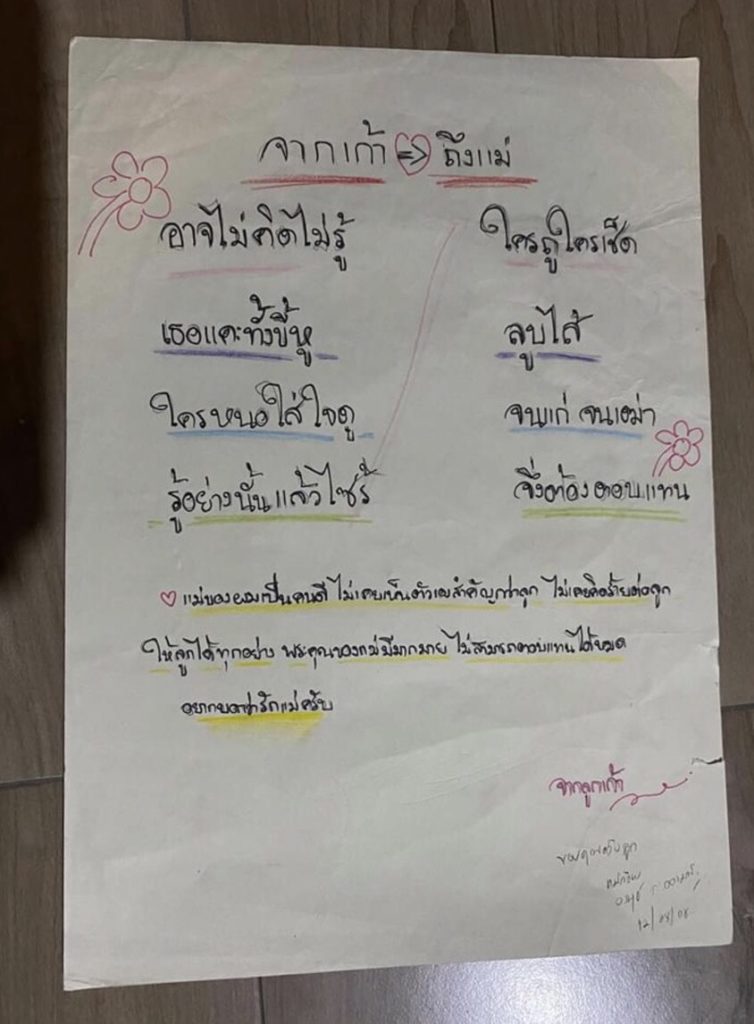 จากเก้า => ถึงแม่
อาจไม่คิดไม่รู้ ใครถูใครเช็ด
เธอแคะทั้งขี้หู ลูบไล้
ใครหนอใส่ใจดู จนแก่ จนเฒ่า
รู้อย่างนั้นแล้วไซร้ จึ่งต้องตอบแทน
แม่ของผมเป็นคนดี ไม่เคยเห็นตัวเองสำคัญกว่าลูก ไม่เคยคิดร้ายต่อลูก
ให้ลูกได้ทุกอย่าง พระคุณของแม่มีมากมาย ไม่สามารถตอบแทนได้หมด
อยากบอกว่ารักแม่ครับ
จากลูกเก้า
ขอบคุณครับลูก